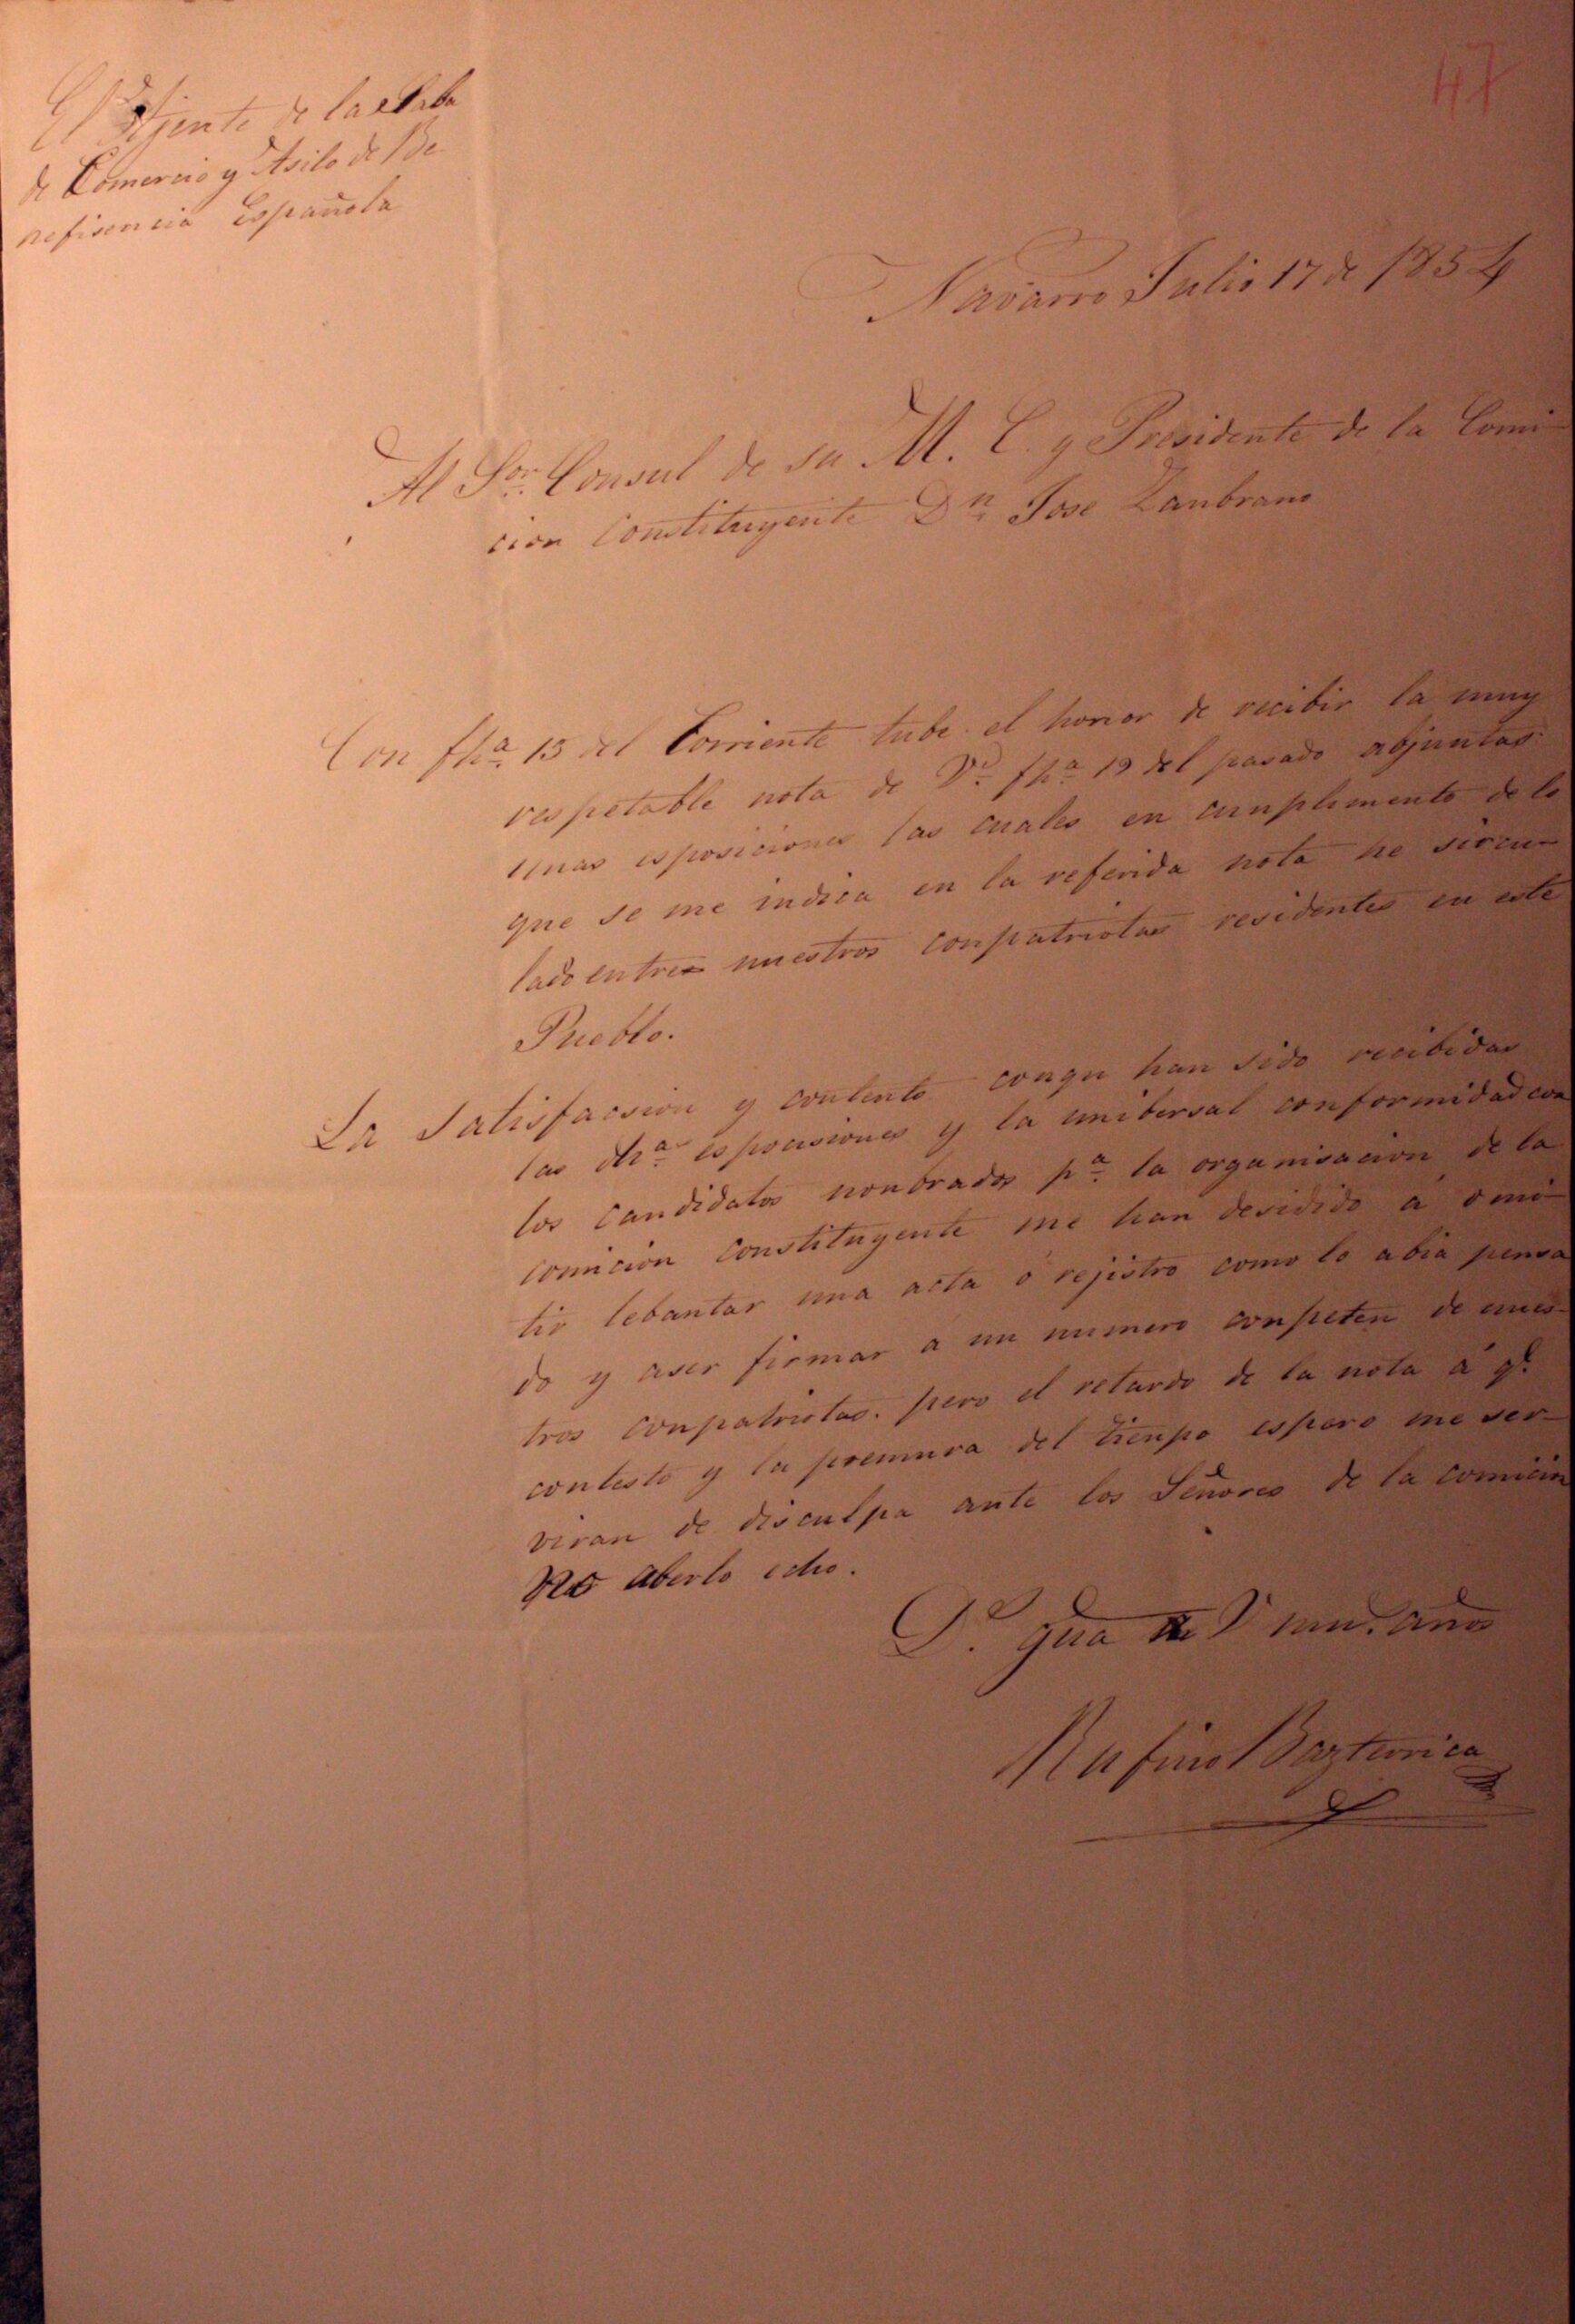 47
El Ajente de la Sala
de Comercio y Asilo de Be-
nefisencia Española
Navarro Julio 17 de 1854
Al Sor. Consul de su M. C. y Presidente de la Comi-
cion Constituyente Dn. Jose Zanbrano
Con fha. 15 del Corriente tube el honor de recibir la muy
respetable nota de Vd. fha. 19 del pasado abjuntas
unas esposiciones las cuales en cunplimento de lo
que se me indica en la referida nota he sircu-
lado entre nuestros conpatriotas residentes en este
Pueblo.
La Satisfacsion y contento conqu han sido recibidas
las dhas. esposisiones y la unibersal conformidad con
los candidatos nonbrados pa. la organisacion de la
comicion constituyente me han desidido á omi-
tir lebantar una acta ó rejistro como lo abia pensa
do y aser firmar á un numero conpeten de nues-
tros conpatriotas. pero el retardo de la nota á qe.
contesto y la premura del tienpo espero me ser-
viran de disculpa ante los Señores de la comicin
no aberlo echo.
Ds. gua de V mus. años
Rufino Bazterrica